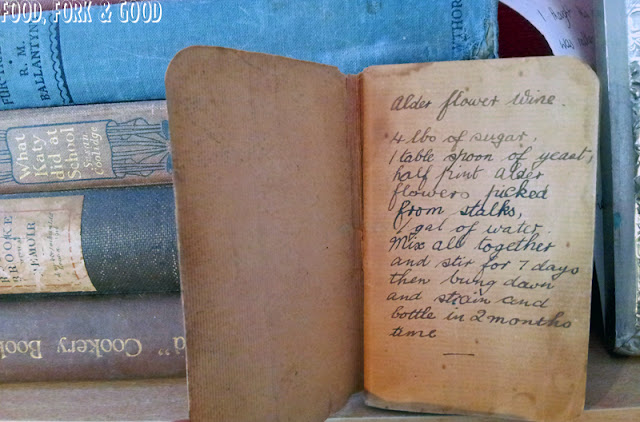 FOOD, FORK & GOOD
R. M.
BALLANTYNE
What
Katy
did at
School
Susan
Coolidge
BROOKE
" Cookery Book
Alder flower Wine.
4 lbs of sugar,
1 table spoon of yeast,
half pint Alder
flowers picked
from stalks,
1 gal of water.
Mix all together
and stir for 7 days
then bung down
and strain and
bottle in 2 months
time